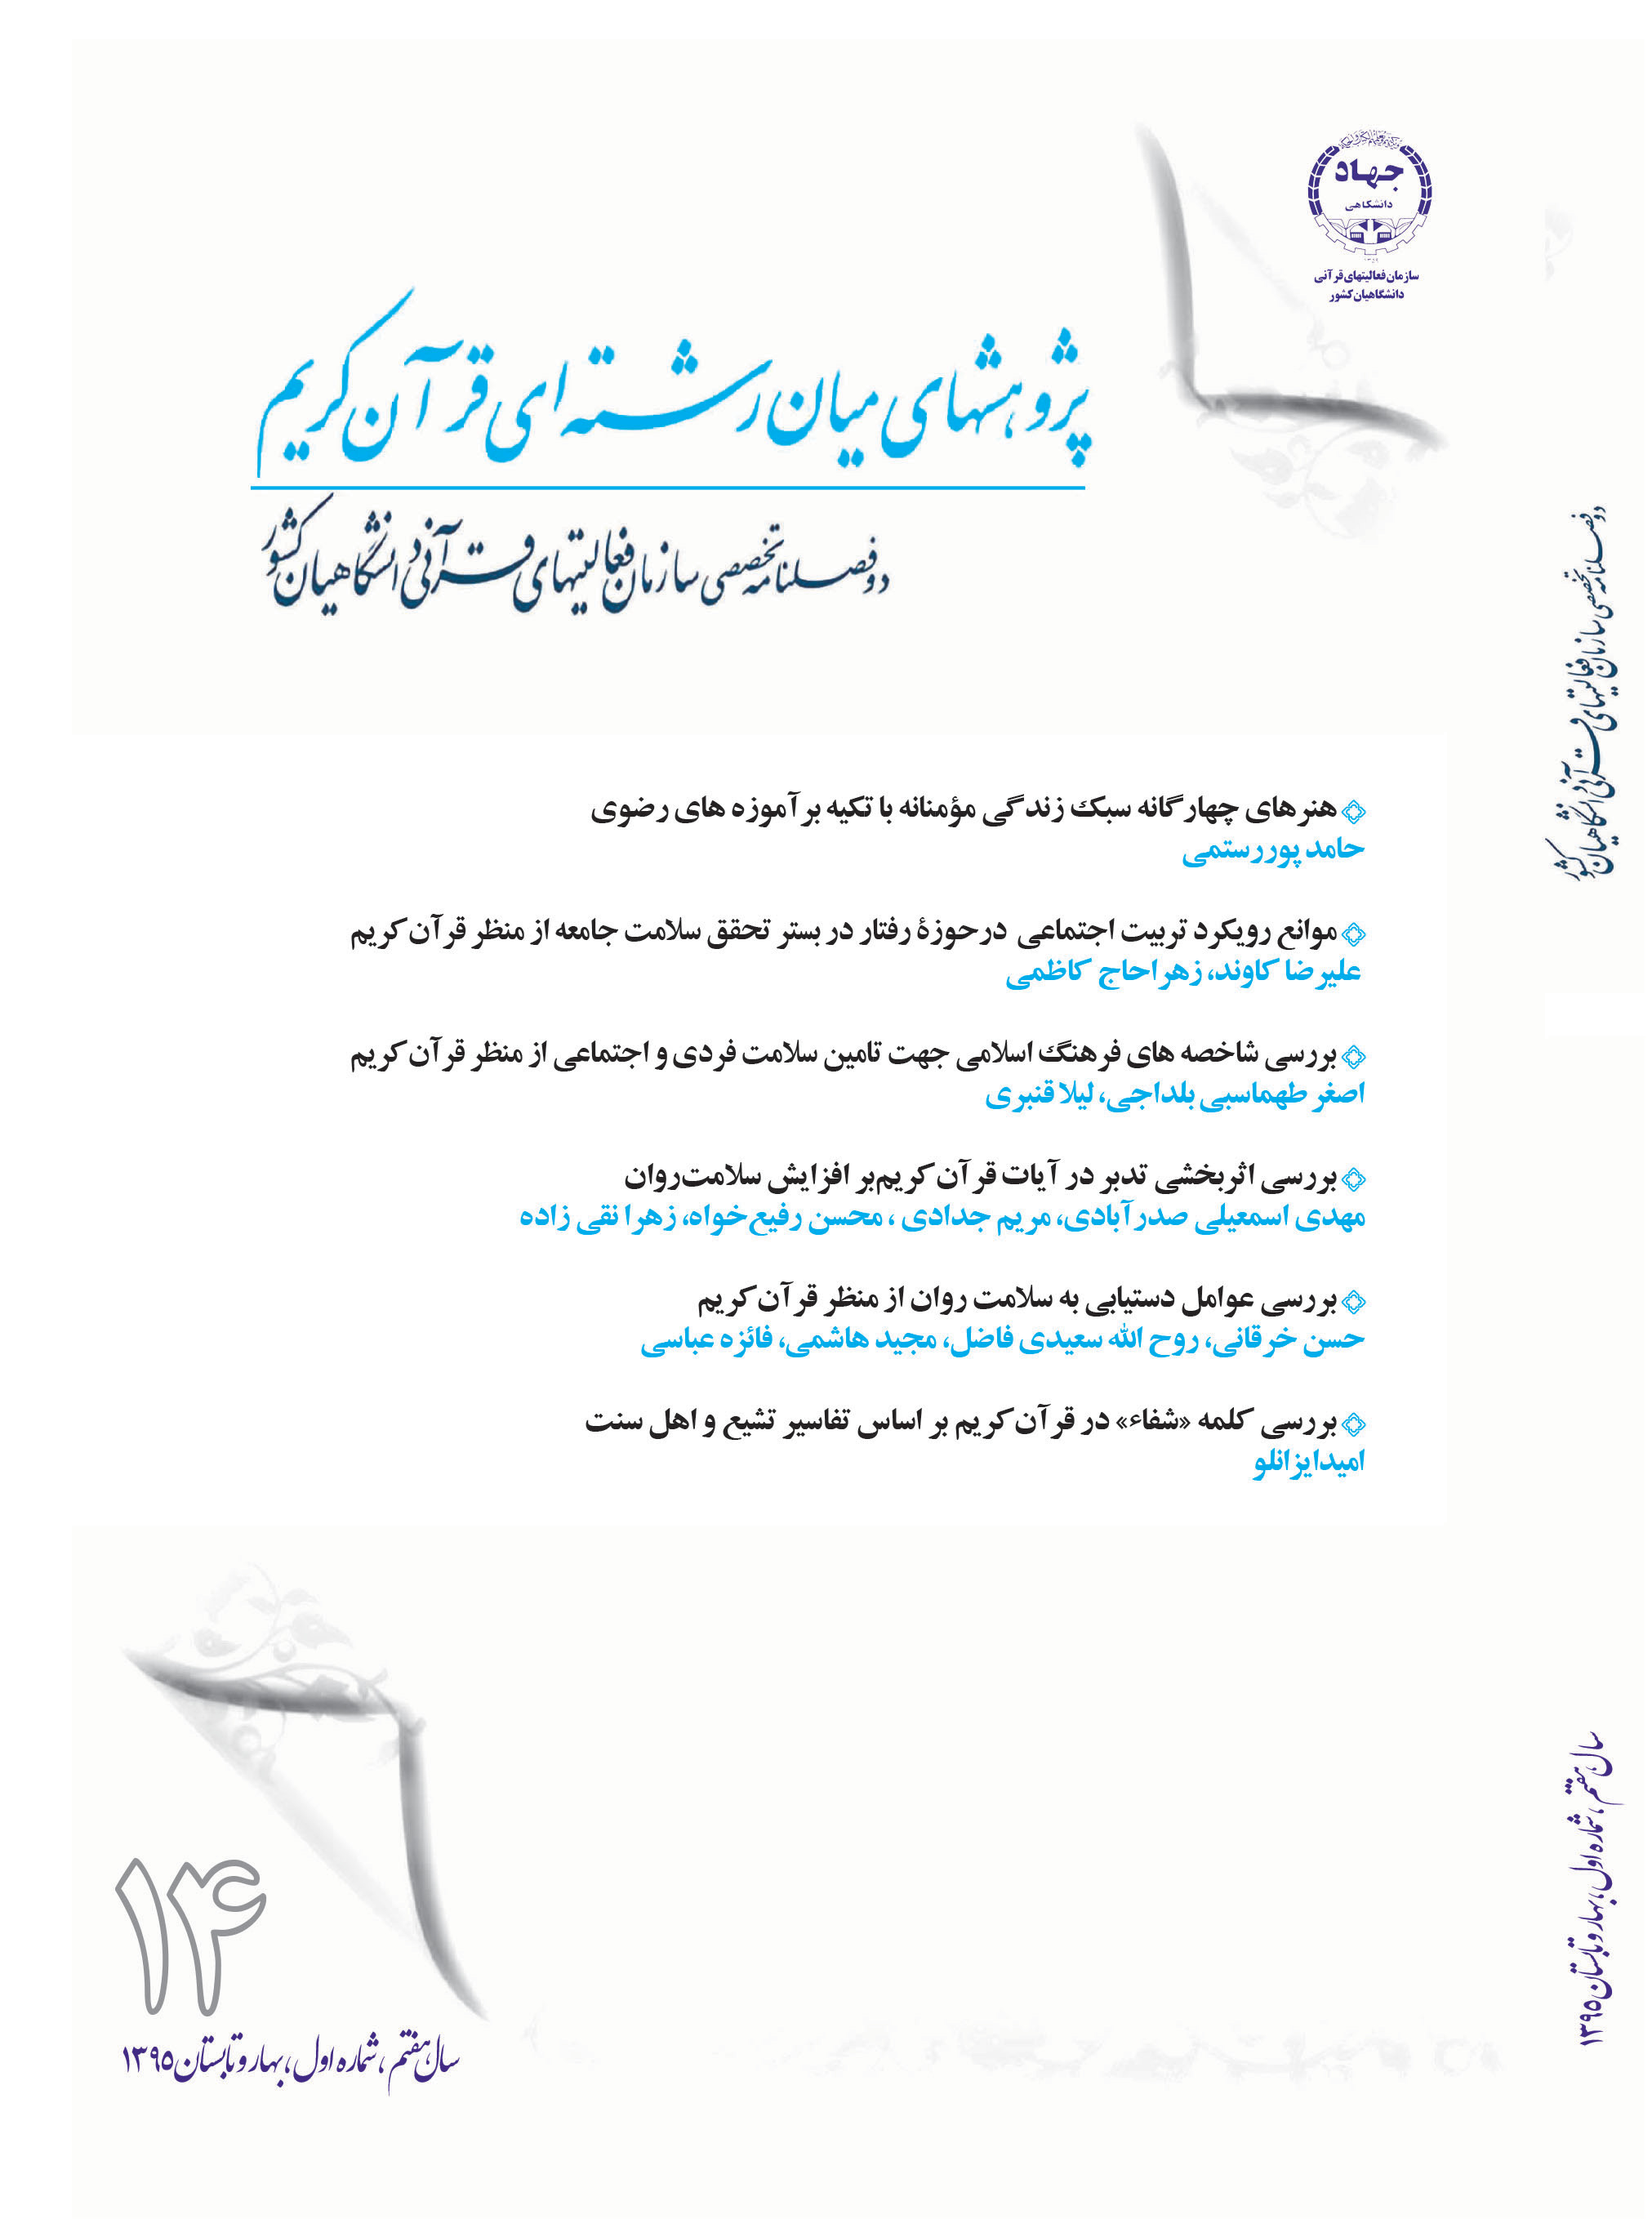 جهاد
دانشگاهی
۱۳۵۹
سازمان فعالیتهای قرآنی
دانشگاهیان کشور
پژوهشهای میان رشته ای قرآن کریم
دو فصلنامه تخصصی سازمان فعالیتهای قرآنی دانشگاهیان کشور
هنرهای چهارگانه سبک زندگی مؤمنانه با تکیه بر آموزه های رضوی
حامد پوررستمی
موانع رویکرد تربیت اجتماعی درحوزهٔ رفتار در بستر تحقق سلامت جامعه از منظر قرآن کریم
علیرضا کاوند، زهراحاج کاظمی
بررسی شاخصه های فرهنگ اسلامی جهت تامین سلامت فردی و اجتماعی از منظر قرآن کریم
اصغر طهماسبی بلداجی، لیلا قنبری
بررسی اثربخشی تدبر در آیات قرآن کریم‌بر افزایش سلامت‌روان
مهدی اسمعیلی صدرآبادی، مریم جدادی ، محسن رفیع‌خواه، زهرا نقی زاده
بررسی عوامل دستیابی به سلامت روان از منظر قرآن کریم
حسن خرقانی، روح الله سعیدی فاضل، مجید هاشمی، فائزه عباسی
بررسی کلمه «شفاء» در قرآن کریم بر اساس تفاسیر تشیع و اهل سنت
امیدایزانلو
۱۴
سال هفتم ، شماره اول ، بهار و تابستان ۱۳۹۵
دو فصلنامه تخصصی سازمان فعالیتهای قرآنی دانشگاهیان کشور
سال هفتم ، شماره اول ، بهار و تابستان ۱۳۹۵